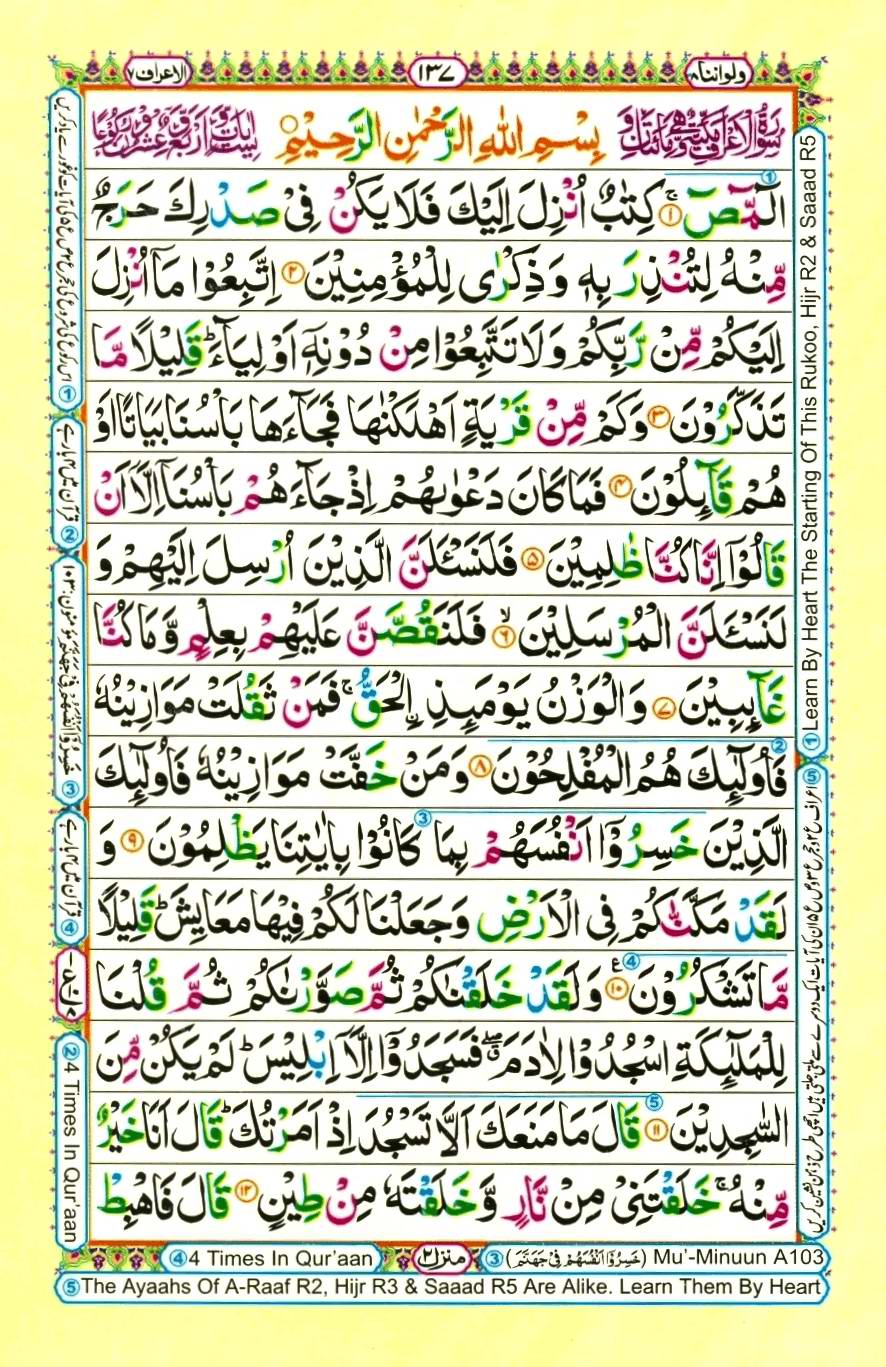 ولواننا ۸
۱۳۷
الاعراف ۷
سُوْرَةُ الْاَعْرَافِ مَكِّيَّةٌ وَّهِيَ مِائَتَانِ وَّ
بِسْمِ اللهِ الرَّحْمٰنِ الرَّحِيْمِ
سِتُّ اٰيَاتٍ وَّاَرْبَعٌ وَّعِشْرُوْنَ رُكُوْعًا
الٓمّٓصٓ ۚ‏﴿۱﴾ كِتٰبٌ اُنْزِلَ اِلَيْكَ فَلَا يَكُنْ فِىْ صَدْرِكَ حَرَجٌ
مِّنْهُ لِتُنْذِرَ بِهٖ وَذِكْرٰى لِلْمُؤْمِنِيْنَ ﴿۲﴾ اِتَّبِعُوْا مَاۤ اُنْزِلَ
اِلَيْكُمْ مِّنْ رَّبِّكُمْ وَلَا تَتَّبِعُوْا مِنْ دُوْنِهٖۤ اَوْلِيَآءَ ؕ قَلِيْلًا مَّا
تَذَكَّرُوْنَ ﴿۳﴾ وَكَمْ مِّنْ قَرْيَةٍ اَهْلَكْنٰهَا فَجَآءَهَا بَاْسُنَا بَيَاتًا اَوْ
هُمْ قَآىِٕلُوْنَ ﴿۴﴾ فَمَا كَانَ دَعْوٰىهُمْ اِذْ جَآءَهُمْ بَاْسُنَاۤ اِلَّاۤ اَنْ
قَالُوْۤا اِنَّا كُنَّا ظٰلِمِيْنَ ﴿۵﴾ فَلَنَسْـَٔلَنَّ الَّذِيْنَ اُرْسِلَ اِلَيْهِمْ وَ
لَنَسْـَٔلَنَّ الْمُرْسَلِيْنَ ۙ﴿۶﴾ فَلَنَقُصَّنَّ عَلَيْهِمْ بِعِلْمٍ وَّمَا كُنَّا
غَآىِٕبِيْنَ ﴿۷﴾ وَالْوَزْنُ يَوْمَىِٕذِ ۨالْحَقُّ ۚ فَمَنْ ثَقُلَتْ مَوَازِيْنُهٗ
فَاُولٰٓىِٕكَ هُمُ الْمُفْلِحُوْنَ ﴿۸﴾ وَمَنْ خَفَّتْ مَوَازِيْنُهٗ فَاُولٰٓىِٕكَ
الَّذِيْنَ خَسِرُوْۤا اَنْفُسَهُمْ بِمَا كَانُوْا بِاٰيٰتِنَا يَظْلِمُوْنَ ﴿۹﴾ وَ
لَقَدْ مَكَّنّٰكُمْ فِى الْاَرْضِ وَجَعَلْنَا لَكُمْ فِيْهَا مَعَايِشَ ؕ قَلِيْلًا
مَّا تَشْكُرُوْنَ ﴿۱۰﴾ وَلَقَدْ خَلَقْنٰكُمْ ثُمَّ صَوَّرْنٰكُمْ ثُمَّ قُلْنَا
لِلْمَلٰٓىِٕكَةِ اسْجُدُوْا لِاٰدَمَ ۖۗ فَسَجَدُوْۤا اِلَّاۤ اِبْلِيْسَ ؕ لَمْ يَكُنْ مِّنَ
السّٰجِدِيْنَ ﴿۱۱﴾ قَالَ مَا مَنَعَكَ اَلَّا تَسْجُدَ اِذْ اَمَرْتُكَ ؕ قَالَ اَنَا خَيْرٌ
مِّنْهُ ۚ خَلَقْتَنِىْ مِنْ نَّارٍ وَّخَلَقْتَهٗ مِنْ طِيْنٍ ﴿۱۲﴾ قَالَ فَاهْبِطْ
① Learn By Heart The Starting Of This Rukoo, Hijr R2 & Saaad R5
② قرآن میں ۴ بار ہے
③ خَسِرُوْۤا اَنْفُسَهُمْ فِیْ جَهَنَّمَ مؤمنون: ۱۰۳
④ قرآن میں ۴ بار ہے
② 4 Times In Qur'aan
④ 4 Times In Qur'aan
منزل ۲
③ (خَسِرُوْۤا اَنْفُسَهُمْ فِیْ جَهَنَّمَ) Mu'-Minuun A103
⑤ The Ayaahs Of A-Raaf R2, Hijr R3 & Saaad R5 Are Alike. Learn Them By Heart